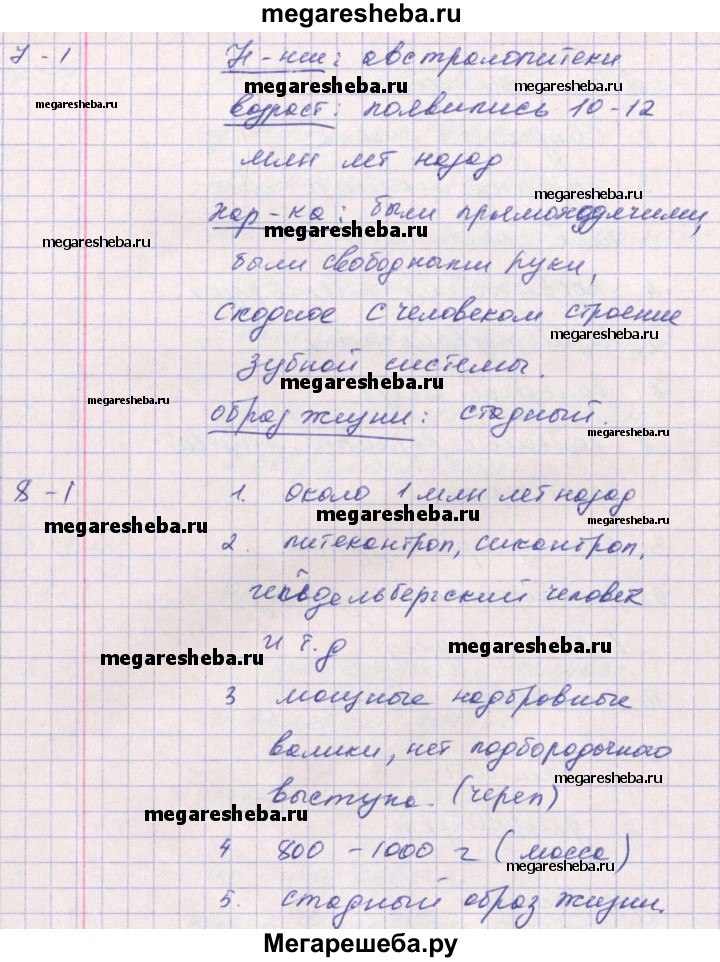 megaresheba.ru
7-1 Н-ки: австралопитеки
megaresheba.ru
megaresheba.ru возраст: появились 10-12
млн лет назад
megaresheba.ru
хар-ка: были прямоходячими,
megaresheba.ru megaresheba.ru
были свободными руки,
сходное с человеком строение
megaresheba.ru
зубной системы.
megaresheba.ru
megaresheba.ru
образ жизни: стадный.
megaresheba.ru
8-1 1. около 1 млн лет назад
megaresheba.ru megaresheba.ru megaresheba.ru
2. питекантроп, синантроп,
гейдельбергский человек
и т.д
megaresheba.ru megaresheba.ru
3 мощные надбровные
валики, нет подбородочного
megaresheba.ru
выступа. (череп)
megaresheba.ru
4 800-1000 г (масса)
megaresheba.ru
5. стадный образ жизни.
megaresheba.ru
Мегарешеба.ру